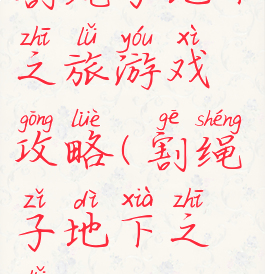 zhī lǚ yóu xì
之旅游戏
gōng lüè gē shéng
攻略(割绳
zǐ dì xià zhī
子地下之